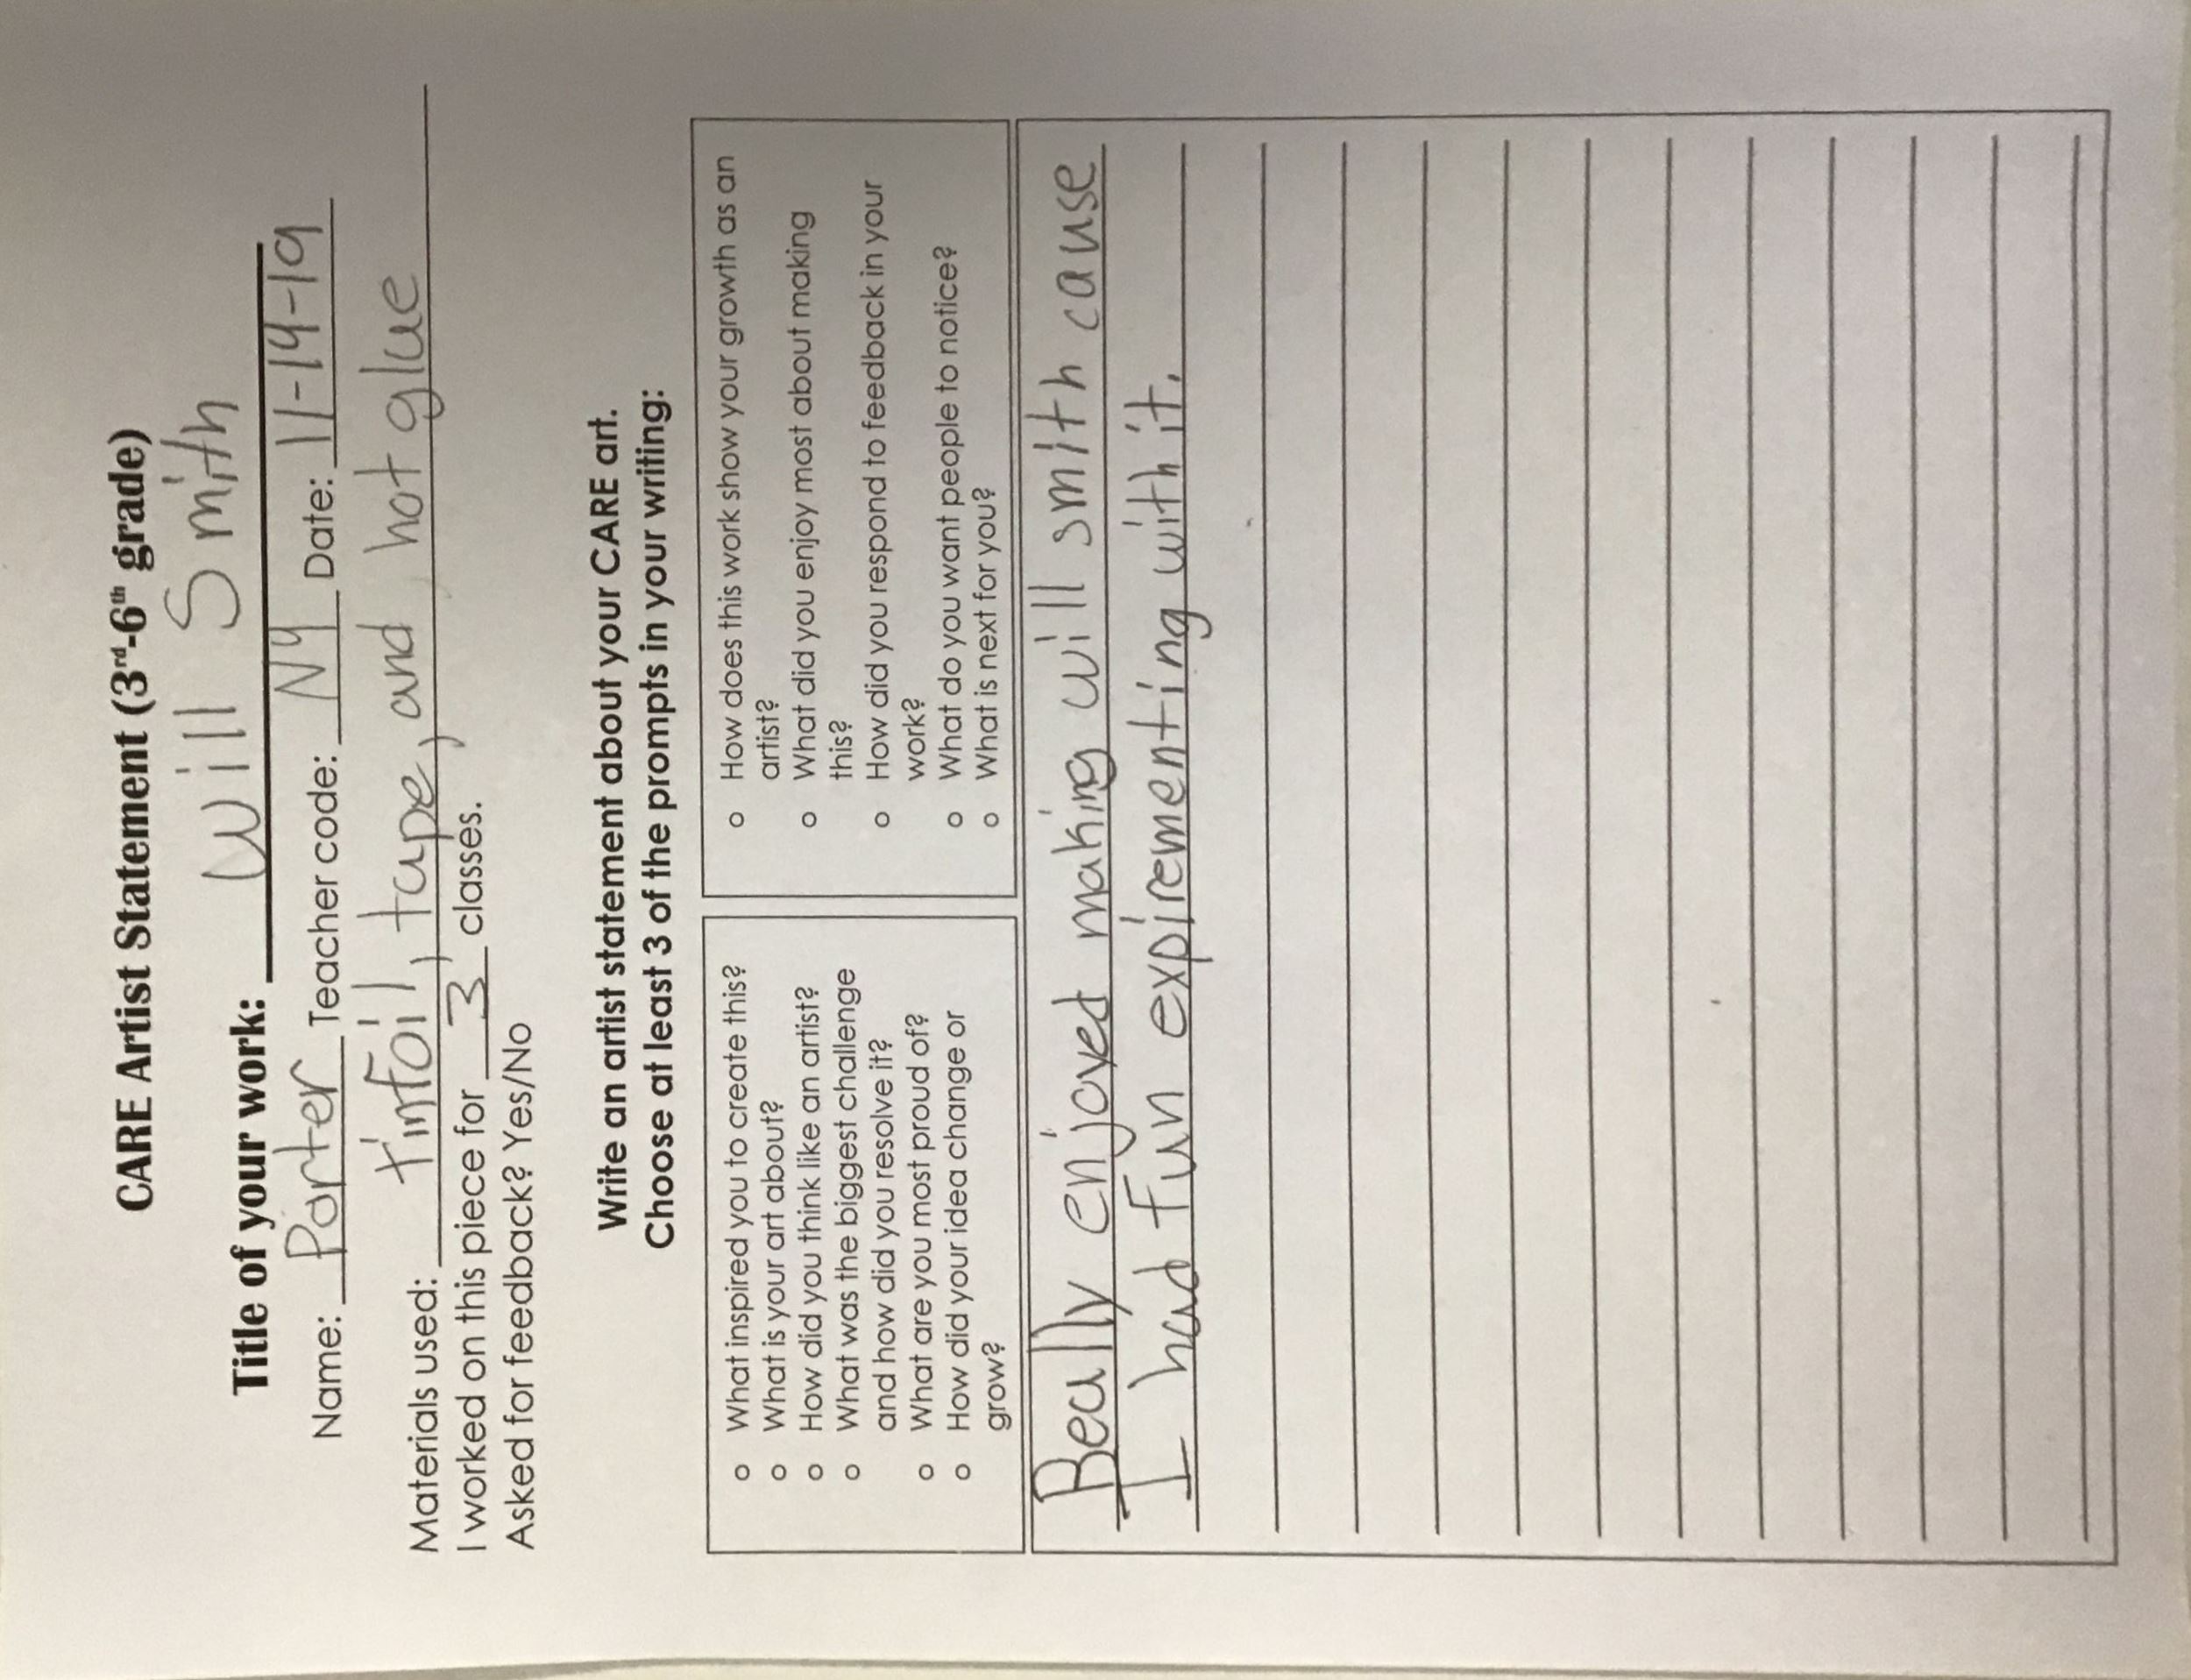 CARE Artist Statement (3rd-6th grade)
Title of your work: Will Smith
Name: Porter Teacher code: N4 Date: 11-14-19
Materials used: tinfoil, tape, and hot glue
I worked on this piece for 3 classes.
Asked for feedback? Yes/No
Write an artist statement about your CARE art.
Choose at least 3 of the prompts in your writing:
o What inspired you to create this?
o What is your art about?
o How did you think like an artist?
o What was the biggest challenge
and how did you resolve it?
o What are you most proud of?
o How did your idea change or
grow?
o How does this work show your growth as an
artist?
o What did you enjoy most about making
this?
o How did you respond to feedback in your
work?
o What do you want people to notice?
o What is next for you?
I Really enjoyed making will smith cause
I had fun expirementing with it.